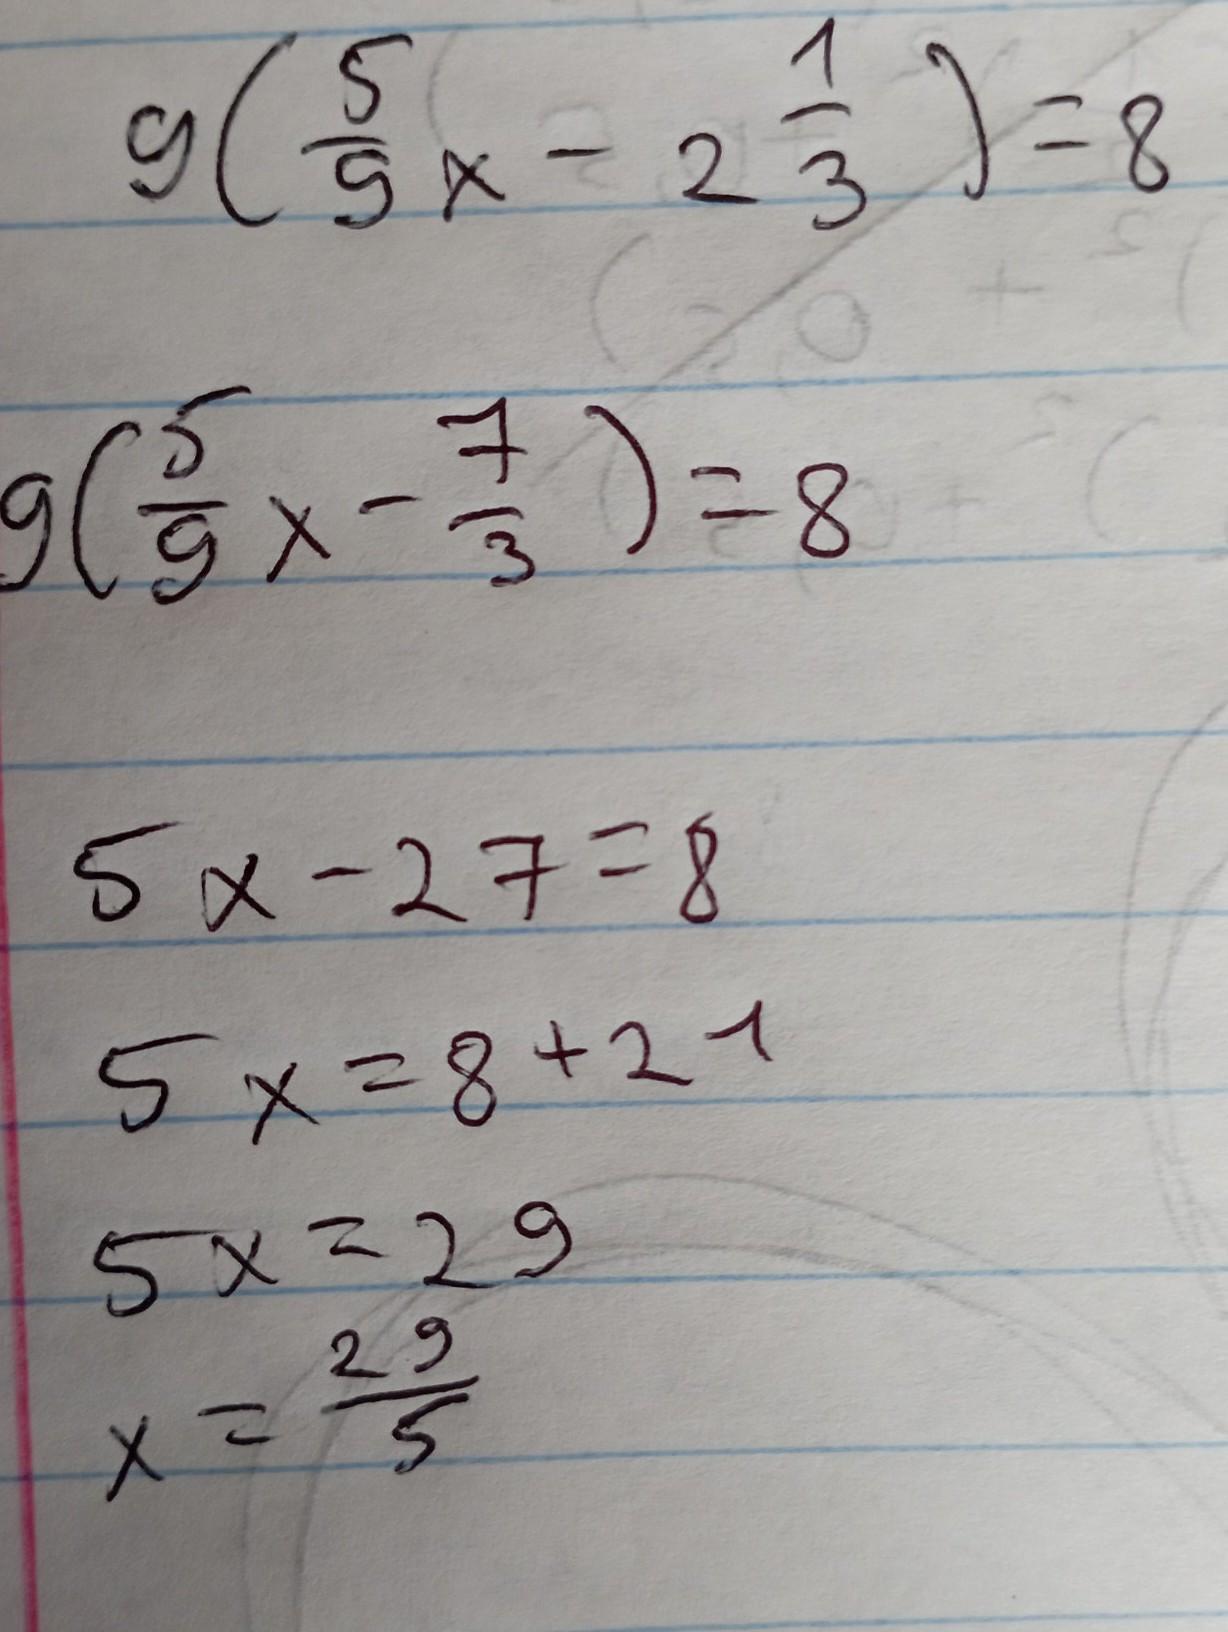 9(5/9 x - 2 1/3) = 8
9(5/9 x - 7/3) = 8
5x - 27 = 8
5x = 8 + 21
5x = 29
x = 29/5